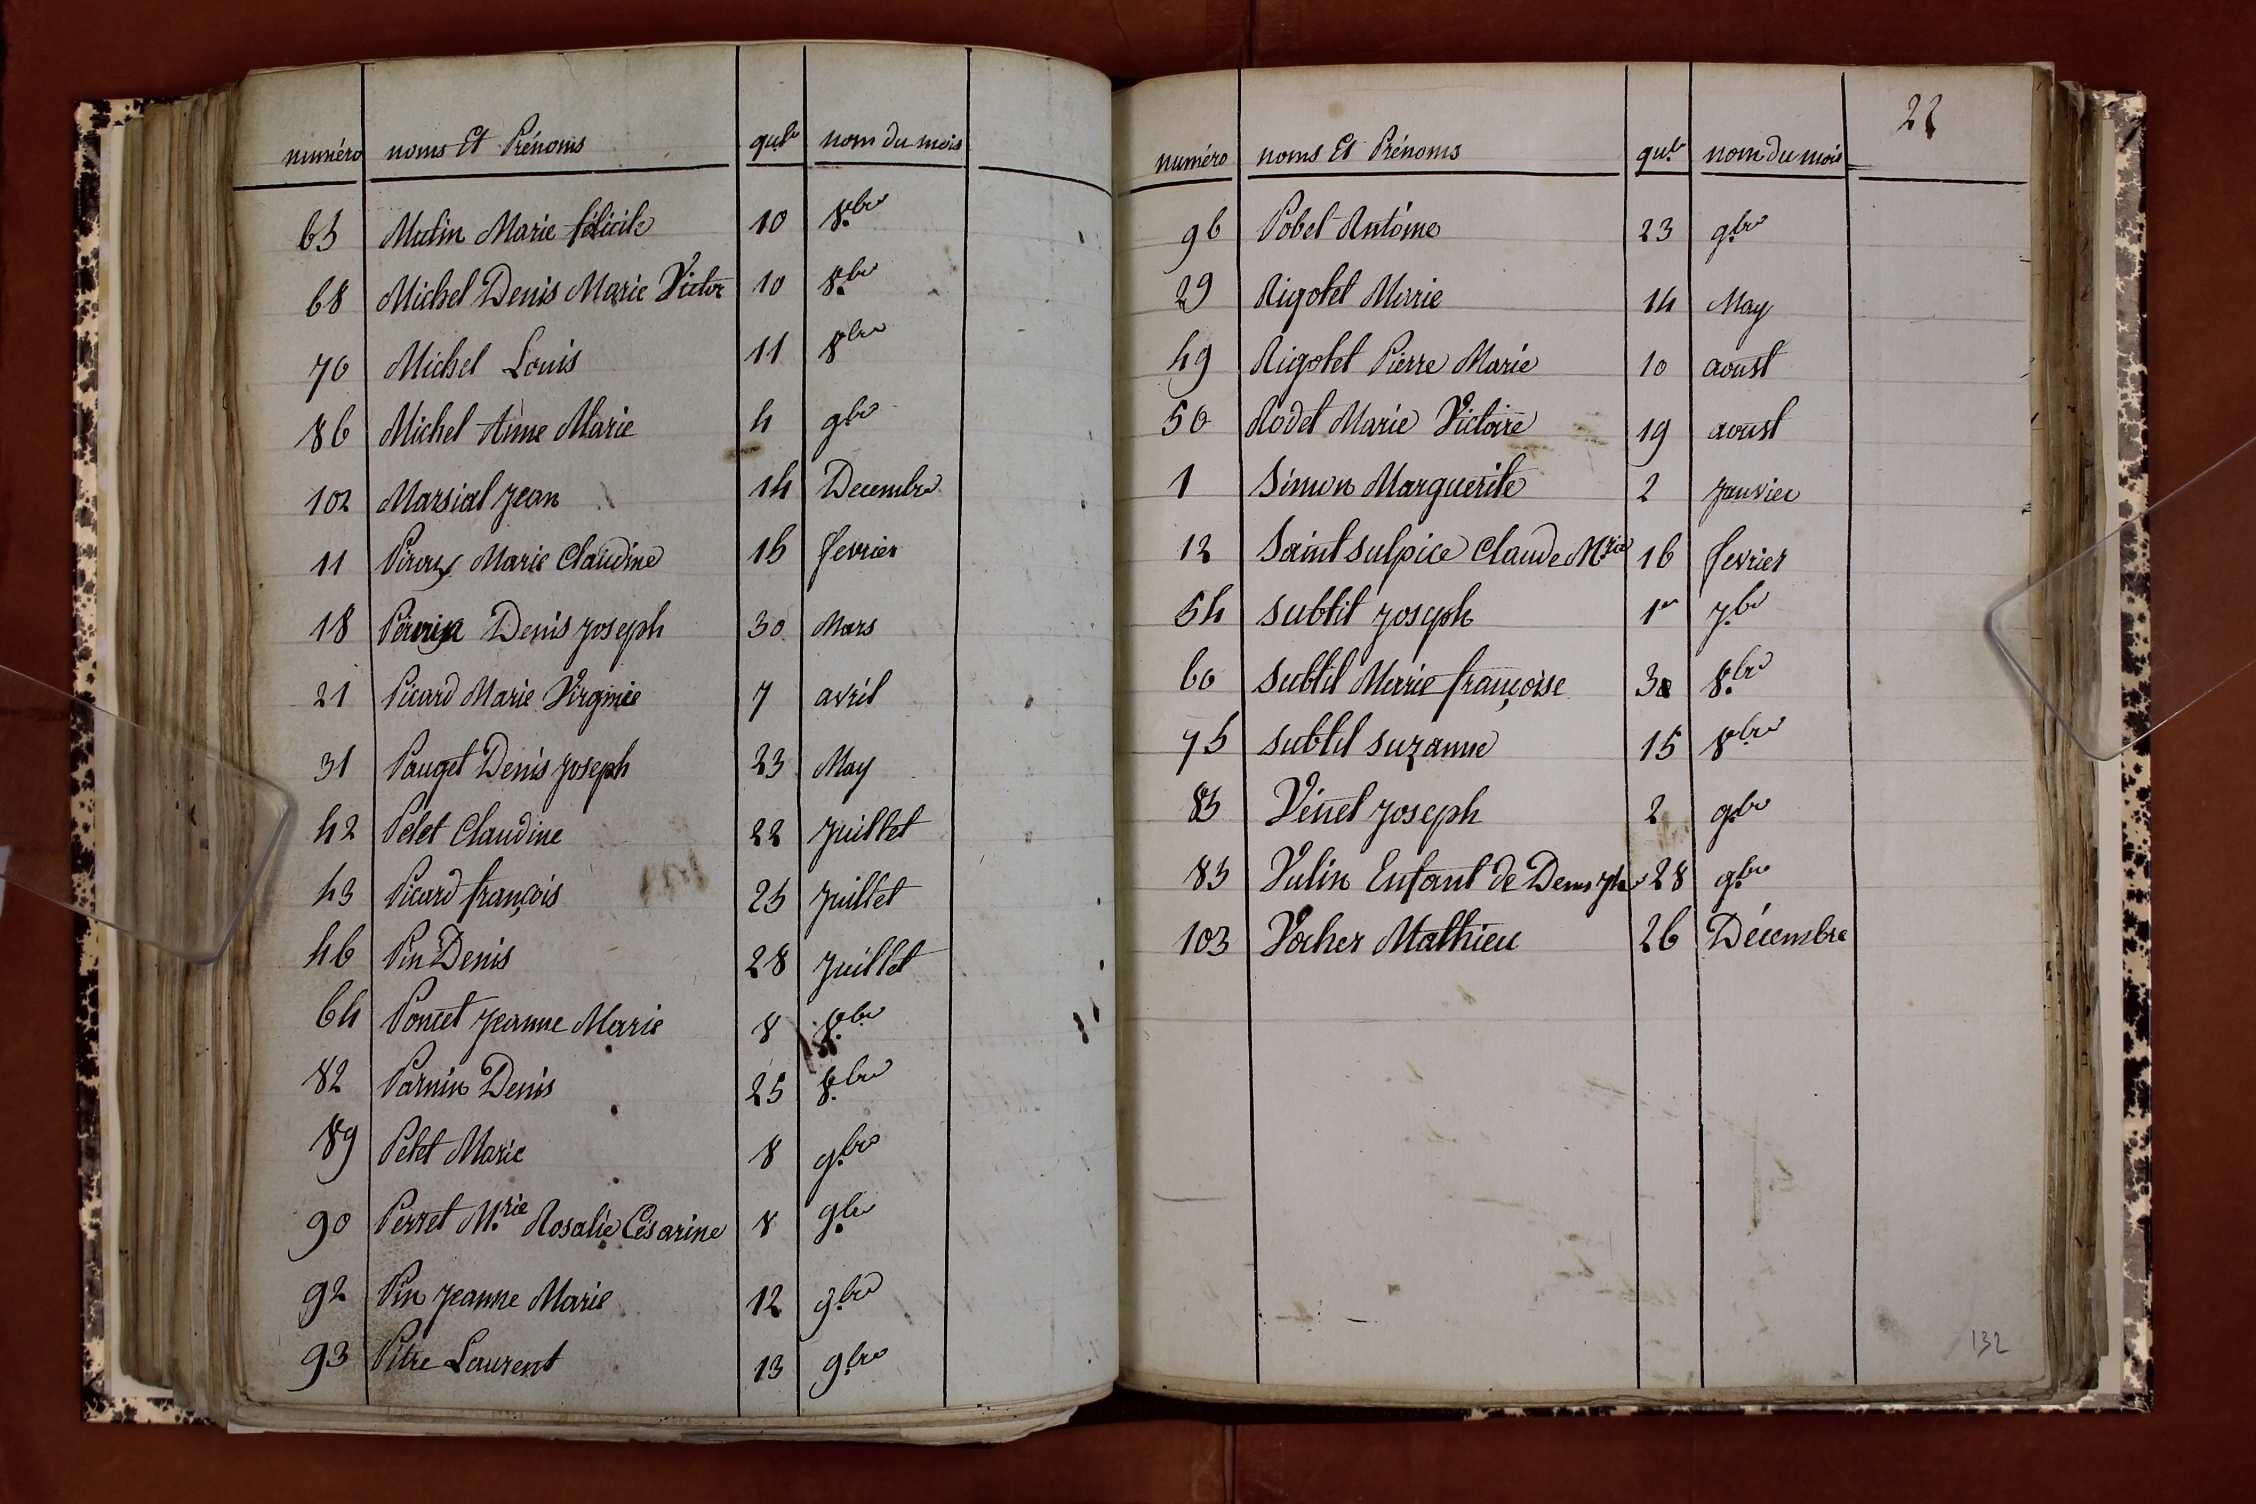 numéro noms Et Prénoms qu.e nom du mois
65 Mutin Marie félicité 10 8.bre
68 Michel Denis Marie Victor 10 8.bre
70 Michel Louis 11 8.bre
86 Michel Anne Marie 4 9bre
102 Marsial Jean 14 Decembre
11 Marie Claudine 15 fevrier
18 Perrin Denis Joseph 30 Mars
21 Picard Marie Virginie 7 avril
31 Pauget Denis Joseph 23 May
42 Petet Claudine 22 Juillet
43 Picard françois 25 Juillet
46 Pin Denis 28 Juillet
64 Poncet Jeanne Marie 8 8.bre
82 Parnin Denis 25 8.bre
89 Petet Marie 8 9.bre
90 Perret M.rie Rosalie Césarine 8 9.bre
92 Pin Jeanne Marie 12 9.bre
93 Pitre Laurent 13 9.bre
22
numéro noms Et Prénoms qu.e nom du mois
96 Pobel Antoine 23 9.bre
29 Rigotet Marie 14 May
49 Rigotet Pierre Marie 10 aoust
50 Rodet Marie Victoire 19 aoust
1 Simon Marguerite 2 Janvier
12 Saint Sulpice Claude M.rie 16 fevrier
54 Subtil Joseph 1er 7.bre
60 Subtil Marie françoise 8.bre
75 Subtil Suzanne 15 8.bre
85 Vénet Joseph 2 9.bre
83 Vulin Enfant de Denis 28 9.bre
103 Vocher Mathieu 26 Décembre
132